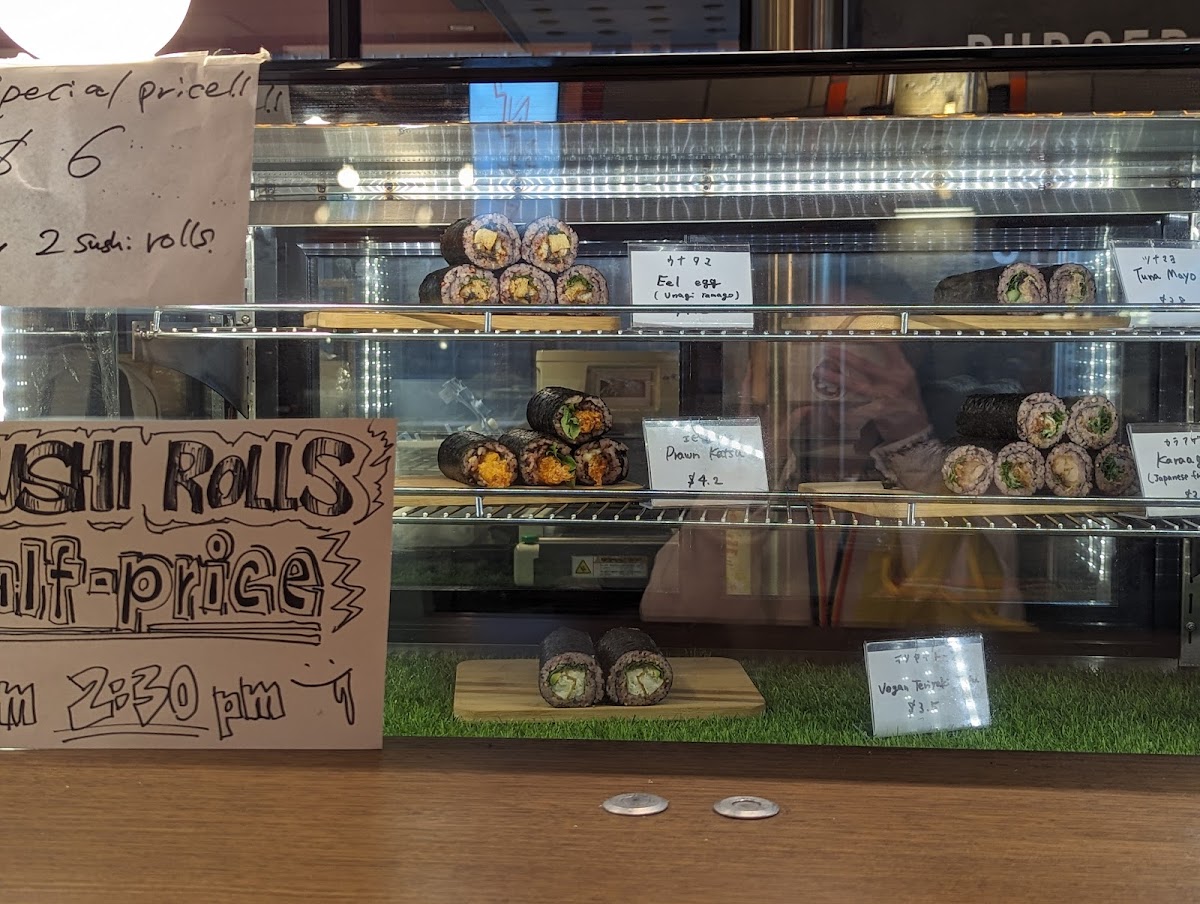 pecial price!!
$ 6
2 sushi rolls
USHI ROLLS
alf-price
m 2:30 pm
BURGER
ウナタマ
Eel egg
(Unagi Tamago)
ツナマヨ
Tuna Mayo
Prawn Katsu
$4.2
カラアゲ
Karaag
(Japanese f
Vegan Teriyaki
$3.5